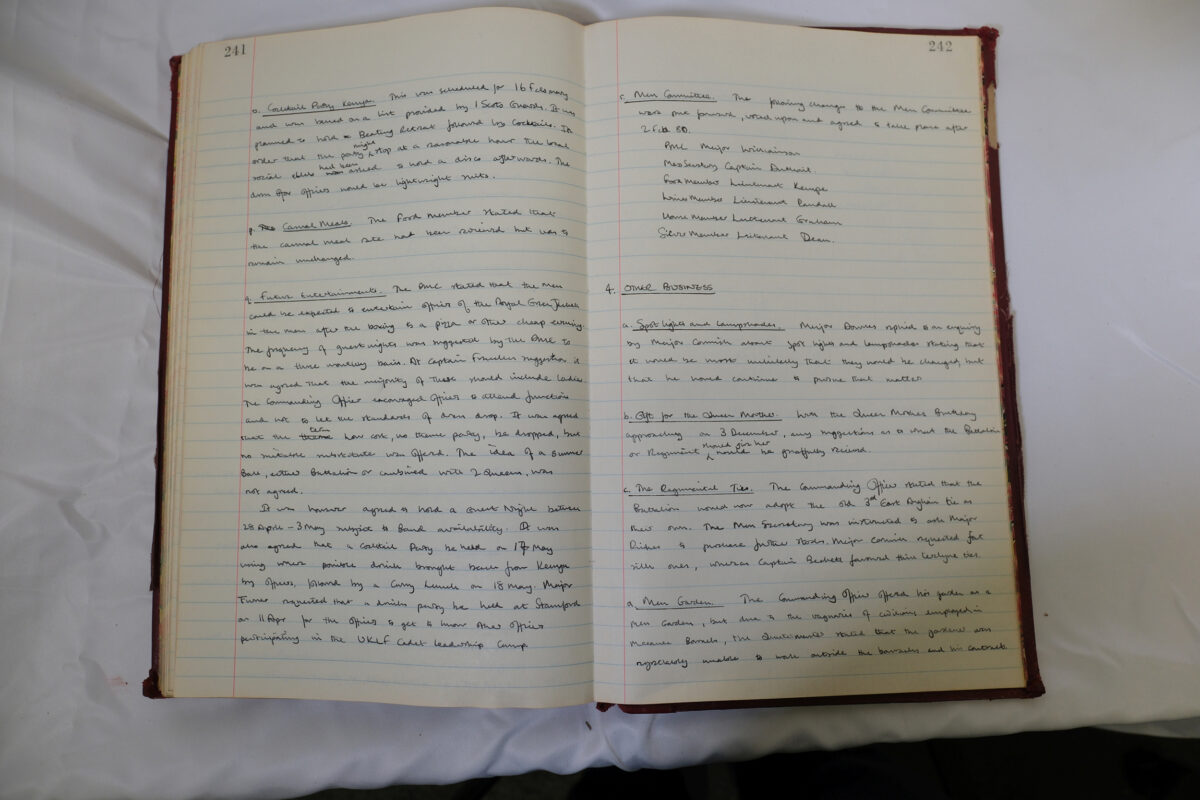 241
o. Cocktail Party Kenya. This was scheduled for 16 February
and was based on a list provided by 1 Scots Guards. It was
planned to hold a Beating Retreat followed by Cocktails. In
order that the party might stop at a reasonable hour the local
social clubs had been asked to hold a disco afterwards. The
dress for officers would be lightweight suits.
p. Casual Meals. The food member stated that
the casual meal rate had been reviewed but was to
remain unchanged.
q. Future Entertainments. The PMC stated that the mess
could be expected to entertain officers of the Royal Green Jackets
in the mess after the boxing to a pizza or other cheap evening.
The frequency of guest nights was suggested by the PMC to
be on a three monthly basis. At Captain suggestion it
was agreed that the majority of these should include ladies.
The Commanding Officer encouraged Officers to attend functions
and not to let the standards of dress drop. It was agreed
that the term low cost, no theme party, be dropped, but
no suitable substitute was offered. The idea of a Summer
Ball, either Battalion or combined with 2 Queens, was
not agreed.
It was however agreed to hold a Guest Night between
28 April - 3 May subject to Band availability. It was
also agreed that a Cocktail Party be held on 17 May
using where possible drinks brought back from Kenya
by officers, followed by a Curry Lunch on 18 May. Major
Turner requested that a drinks party be held at Stamford
on 11 Apr for the officers to get to know other officers
participating in the UKLF Cadet Leadership Camp.
242
r. Mess Committee. The following changes to the Mess Committee
were put forward, voted upon and agreed to take place after
2 Feb 80.
PMC Major Williamson
Mess Secretary Captain
Food Member Lieutenant Kempe
Wines Member Lieutenant Randall
Home Member Lieutenant Graham
Silver Member Lieutenant Dean.
4. OTHER BUSINESS
a. Spot lights and Lampshades. Major Downes replied to an enquiry
by Major Cornish about spot lights and lampshades stating that
it would be most unlikely that they would be changed, but
that he would continue to pursue that matter
b. Gift for the Queen Mother. With the Queen Mother Birthday
approaching on 3 December, any suggestions as to what the Battalion
or Regiment should give her would be gratefully received.
c. The Regimental Ties. The Commanding Officer stated that the
Battalion would now adopt the old 3rd East Anglian tie as
their own. The Mess Secretary was instructed to ask Major
to purchase further stocks. Major Cornish requested for
silk ones, whereas Captain Beckett favoured thin terylene ties.
d. Mess Garden. The Commanding Officer offered his garden as a
Mess Garden, but due to the vagaries of civilians employed in
Barracks, the Quartermaster stated that the gardener was
regrettably unable to work outside the barracks and his contract.